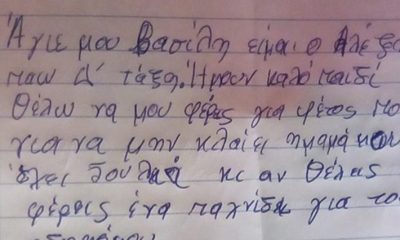 Άγιε μου Βασίλη είμαι ο Αλέξα
παω Δ' τάξη. Ήμουν καλό παιδί
Θέλω να μου φέρεις για φέτος πο
για να μην κλαίει η μαμά μου
έχει δουλειά κι αν θέλεις
φέρεις ένα παιχνίδι για το